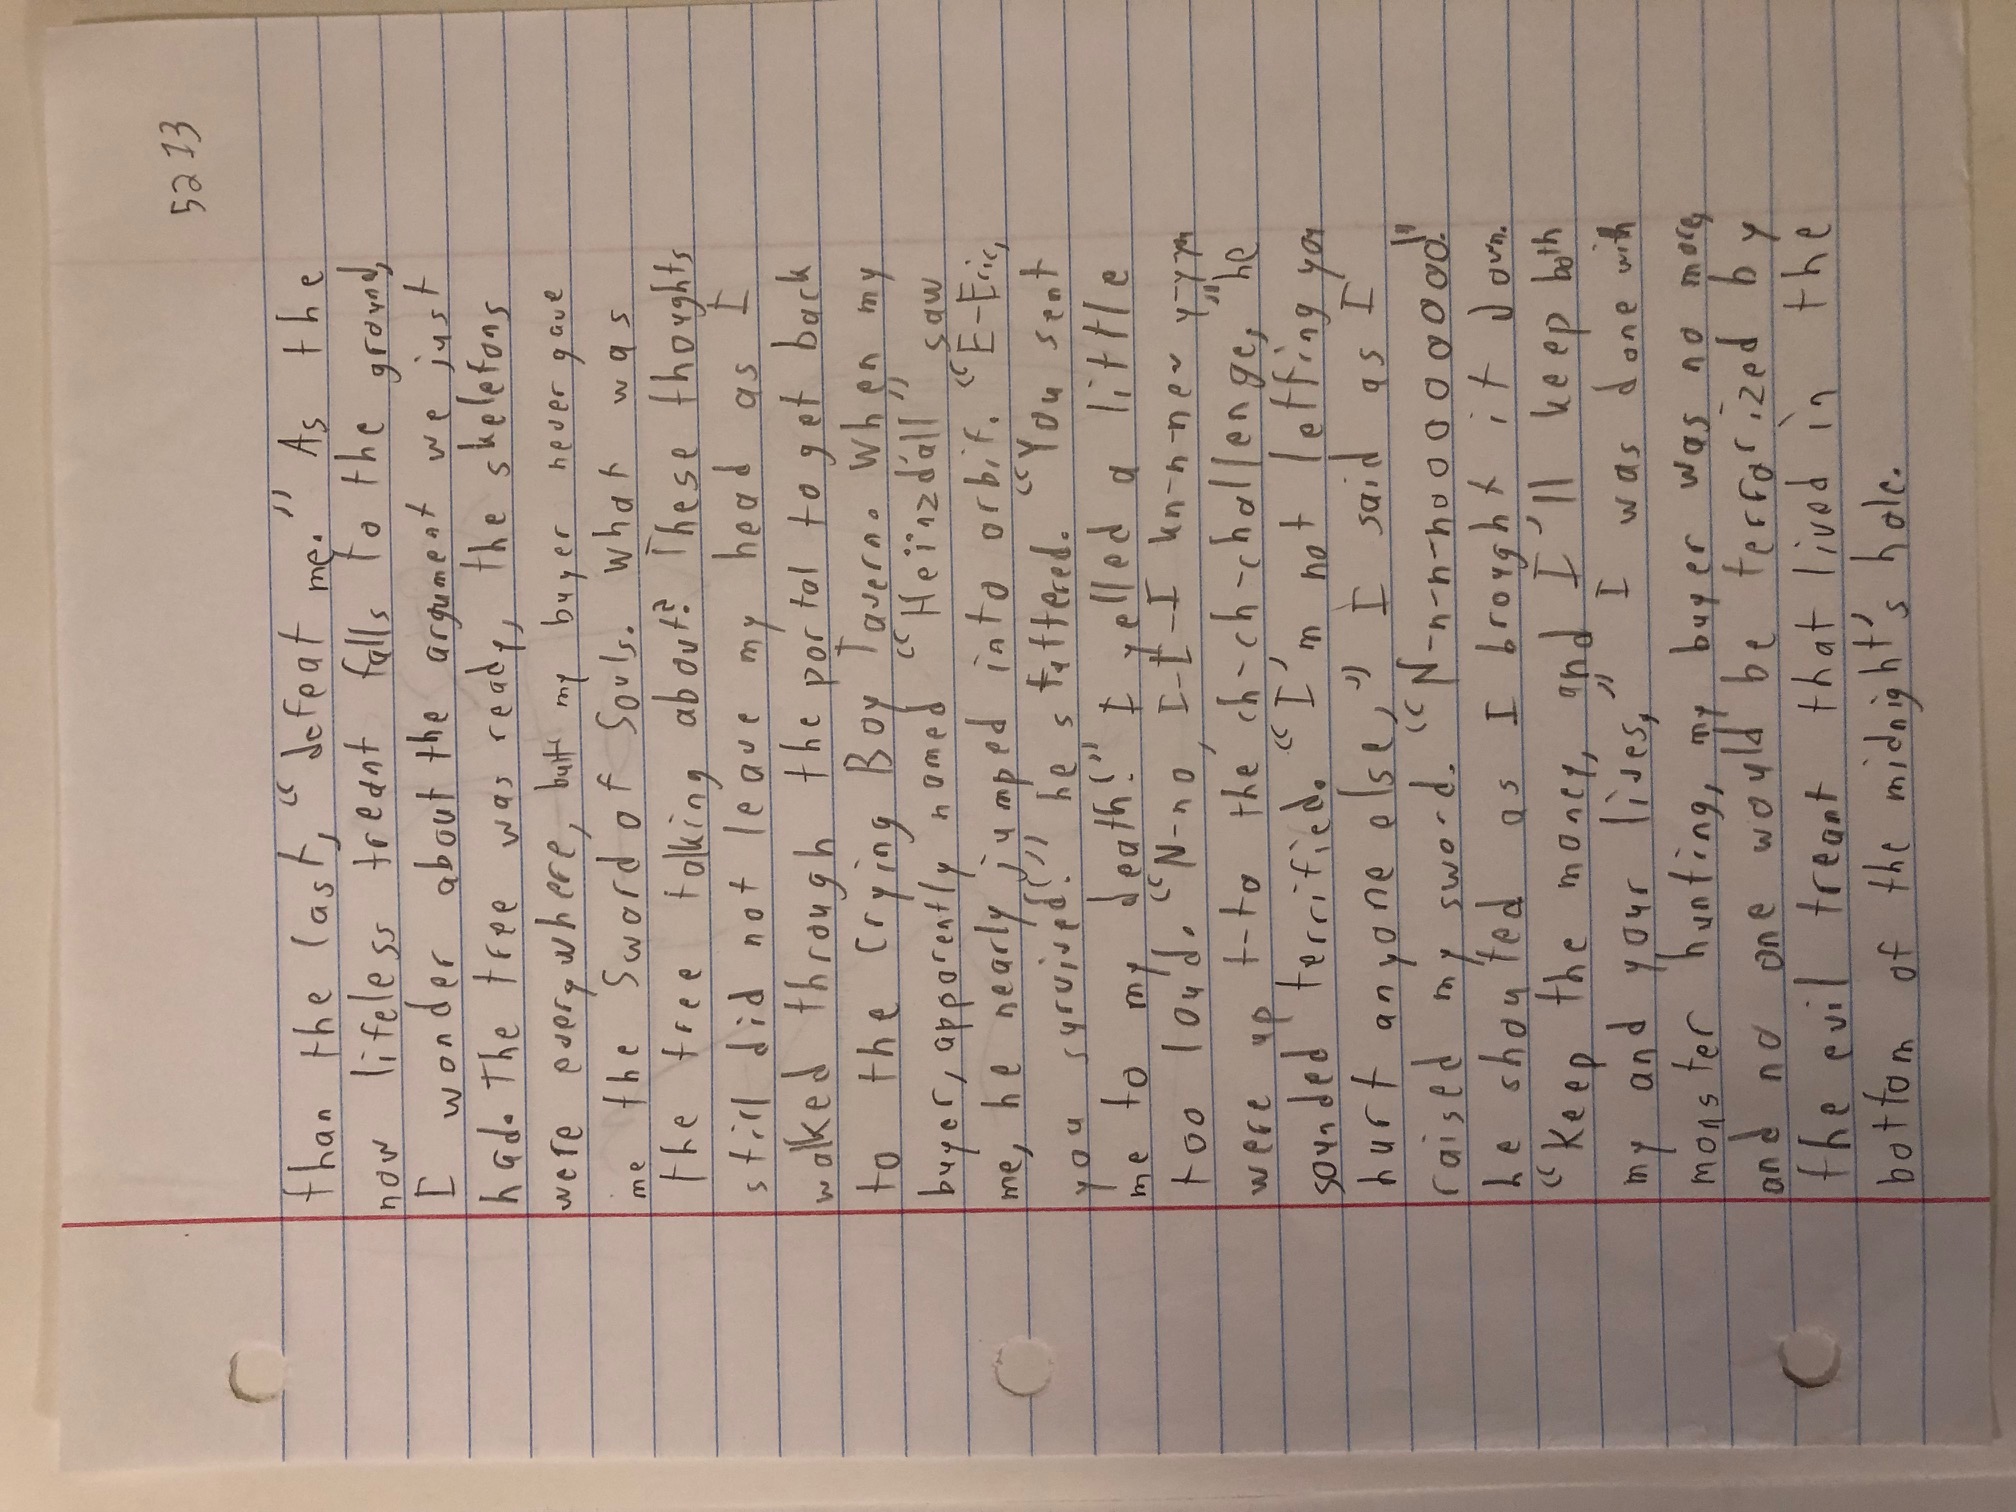 5213
than the last, “defeat me.” As the
now lifeless treant falls to the ground,
I wonder about the argument we just
had. The tree was ready, the skeletons
were everywhere, but my buyer never gave
me the Sword of Souls. What was
the tree talking about? These thoughts
still did not leave my head as I
walked through the portal to get back
to the Crying Boy Tavern. When my
buyer, apparently named “Heïnzdáll” saw
me, he nearly jumped into orbit. “E-Eric,
you survived!” he stuttered. “You sent
me to my death!” I yelled a little
too loud. “N-no, I-I-I kn-n-new y-y-you
were up t-to the ch-ch-challenge,” he
sounded terrified. “I'm not letting you
hurt anyone else,” I said as I
raised my sword. “N-n-n-noooooooo!”
he shouted as I brought it down.
“Keep the money, and I'll keep both
my and your lives,” I was done with
monster hunting, my buyer was no more,
and no one would be terrorized by
the evil treant that lived in the
bottom of the midnight's hole.